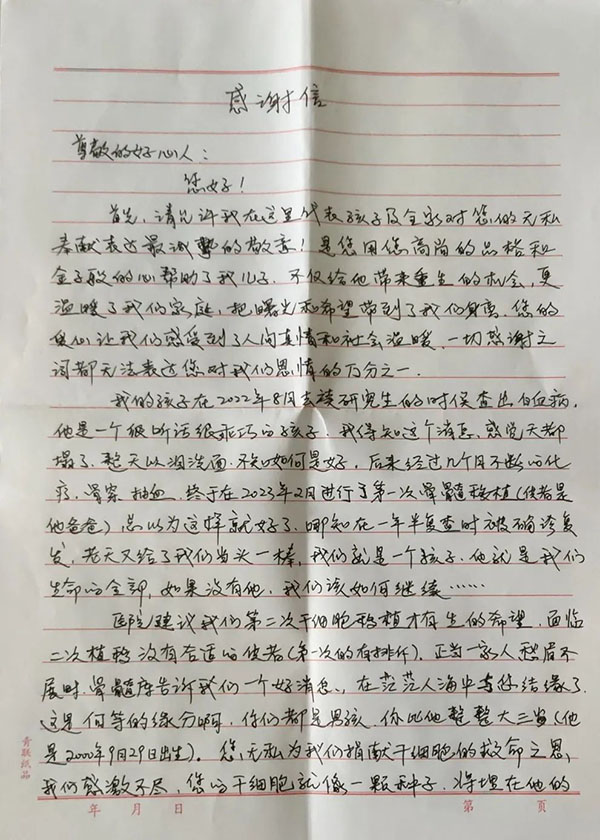 感谢信
尊敬的好心人：
您好！
首先，请允许我在这里代表孩子及全家对您的无私
奉献表达最诚挚的敬意！是您用您高尚的品格和
金子般的心帮助了我儿子，不仅给他带来重生的机会，更
温暖了我们家庭，把曙光和希望带到了我们身离，您的
爱心让我们感受到了人间真情和社会温暖，一切感谢之
词都无法表达您对我们恩情的万分之一。
我的孩子在2022年8月去读研究生的时侯查出白血病，
他是一个很听话很乖巧的孩子，我得知这个消息，感觉天都
塌了，整天以泪洗面，不知如何是好，后来经过几个月不断的化
疗，骨穿，抽血，终于在2023年2月进行了第一次骨髓移植（供者是
他爸爸）总以为这样就好了，哪知在一年半复查时被确诊复
发，老天又给了我们当头一棒，我们就是一个孩子，他就是我们
生命的全部，如果没有他，我们该如何继续……
医院建议我们第二次干细胞移植才有生的希望，面临
二次植移没有合适的供者（第一次的有排斥）。正当一家人愁眉不
展时，骨髓库告诉我们一个好消息，在茫茫人海中与您结缘了，
这是何等的缘分啊，你们都是男孩，你比他整整大三岁（他
是2000年9月29日出生）。您无私为我们捐献干细胞的救命之恩，
我们感激不尽，您的干细胞就像一颗种子，将埋在他的
青联纸品
年 月 日 第 页